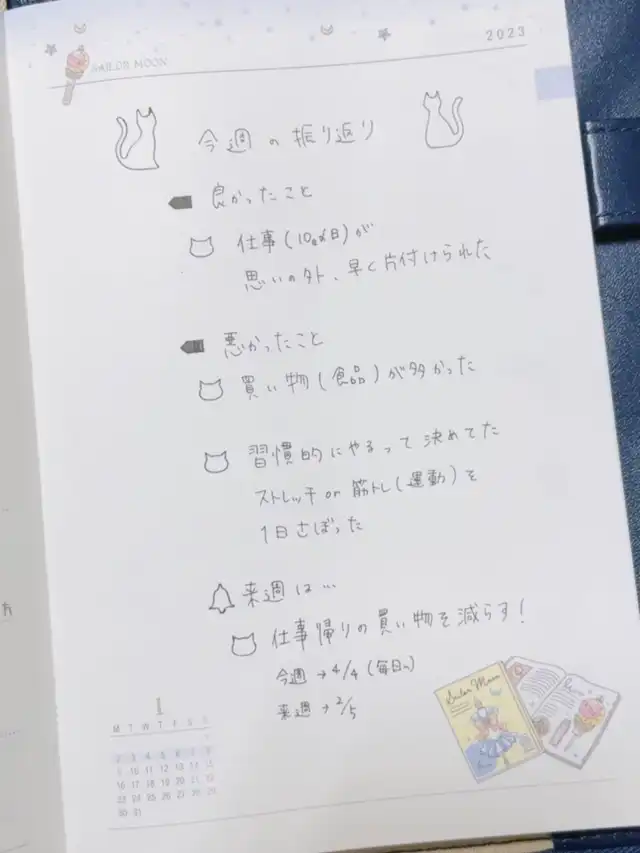 SAILOR MOON
2023
今週の振り返り
良かったこと
仕事(10日)が
思いの外、早く片付けられた
悪かったこと
買い物(食品)が多かった
習慣的にやるって決めてた
ストレッチ or 筋トレ(運動)を
1日さぼった
来週は…
仕事帰りの買い物を減らす!
今週→4/4(毎日)
来週→2/5
Sailor Moon
1
M T W T F S S
1
2 3 4 5 6 7 8
9 10 11 12 13 14 15
16 17 18 19 20 21 22
23 24 25 26 27 28 29
30 31